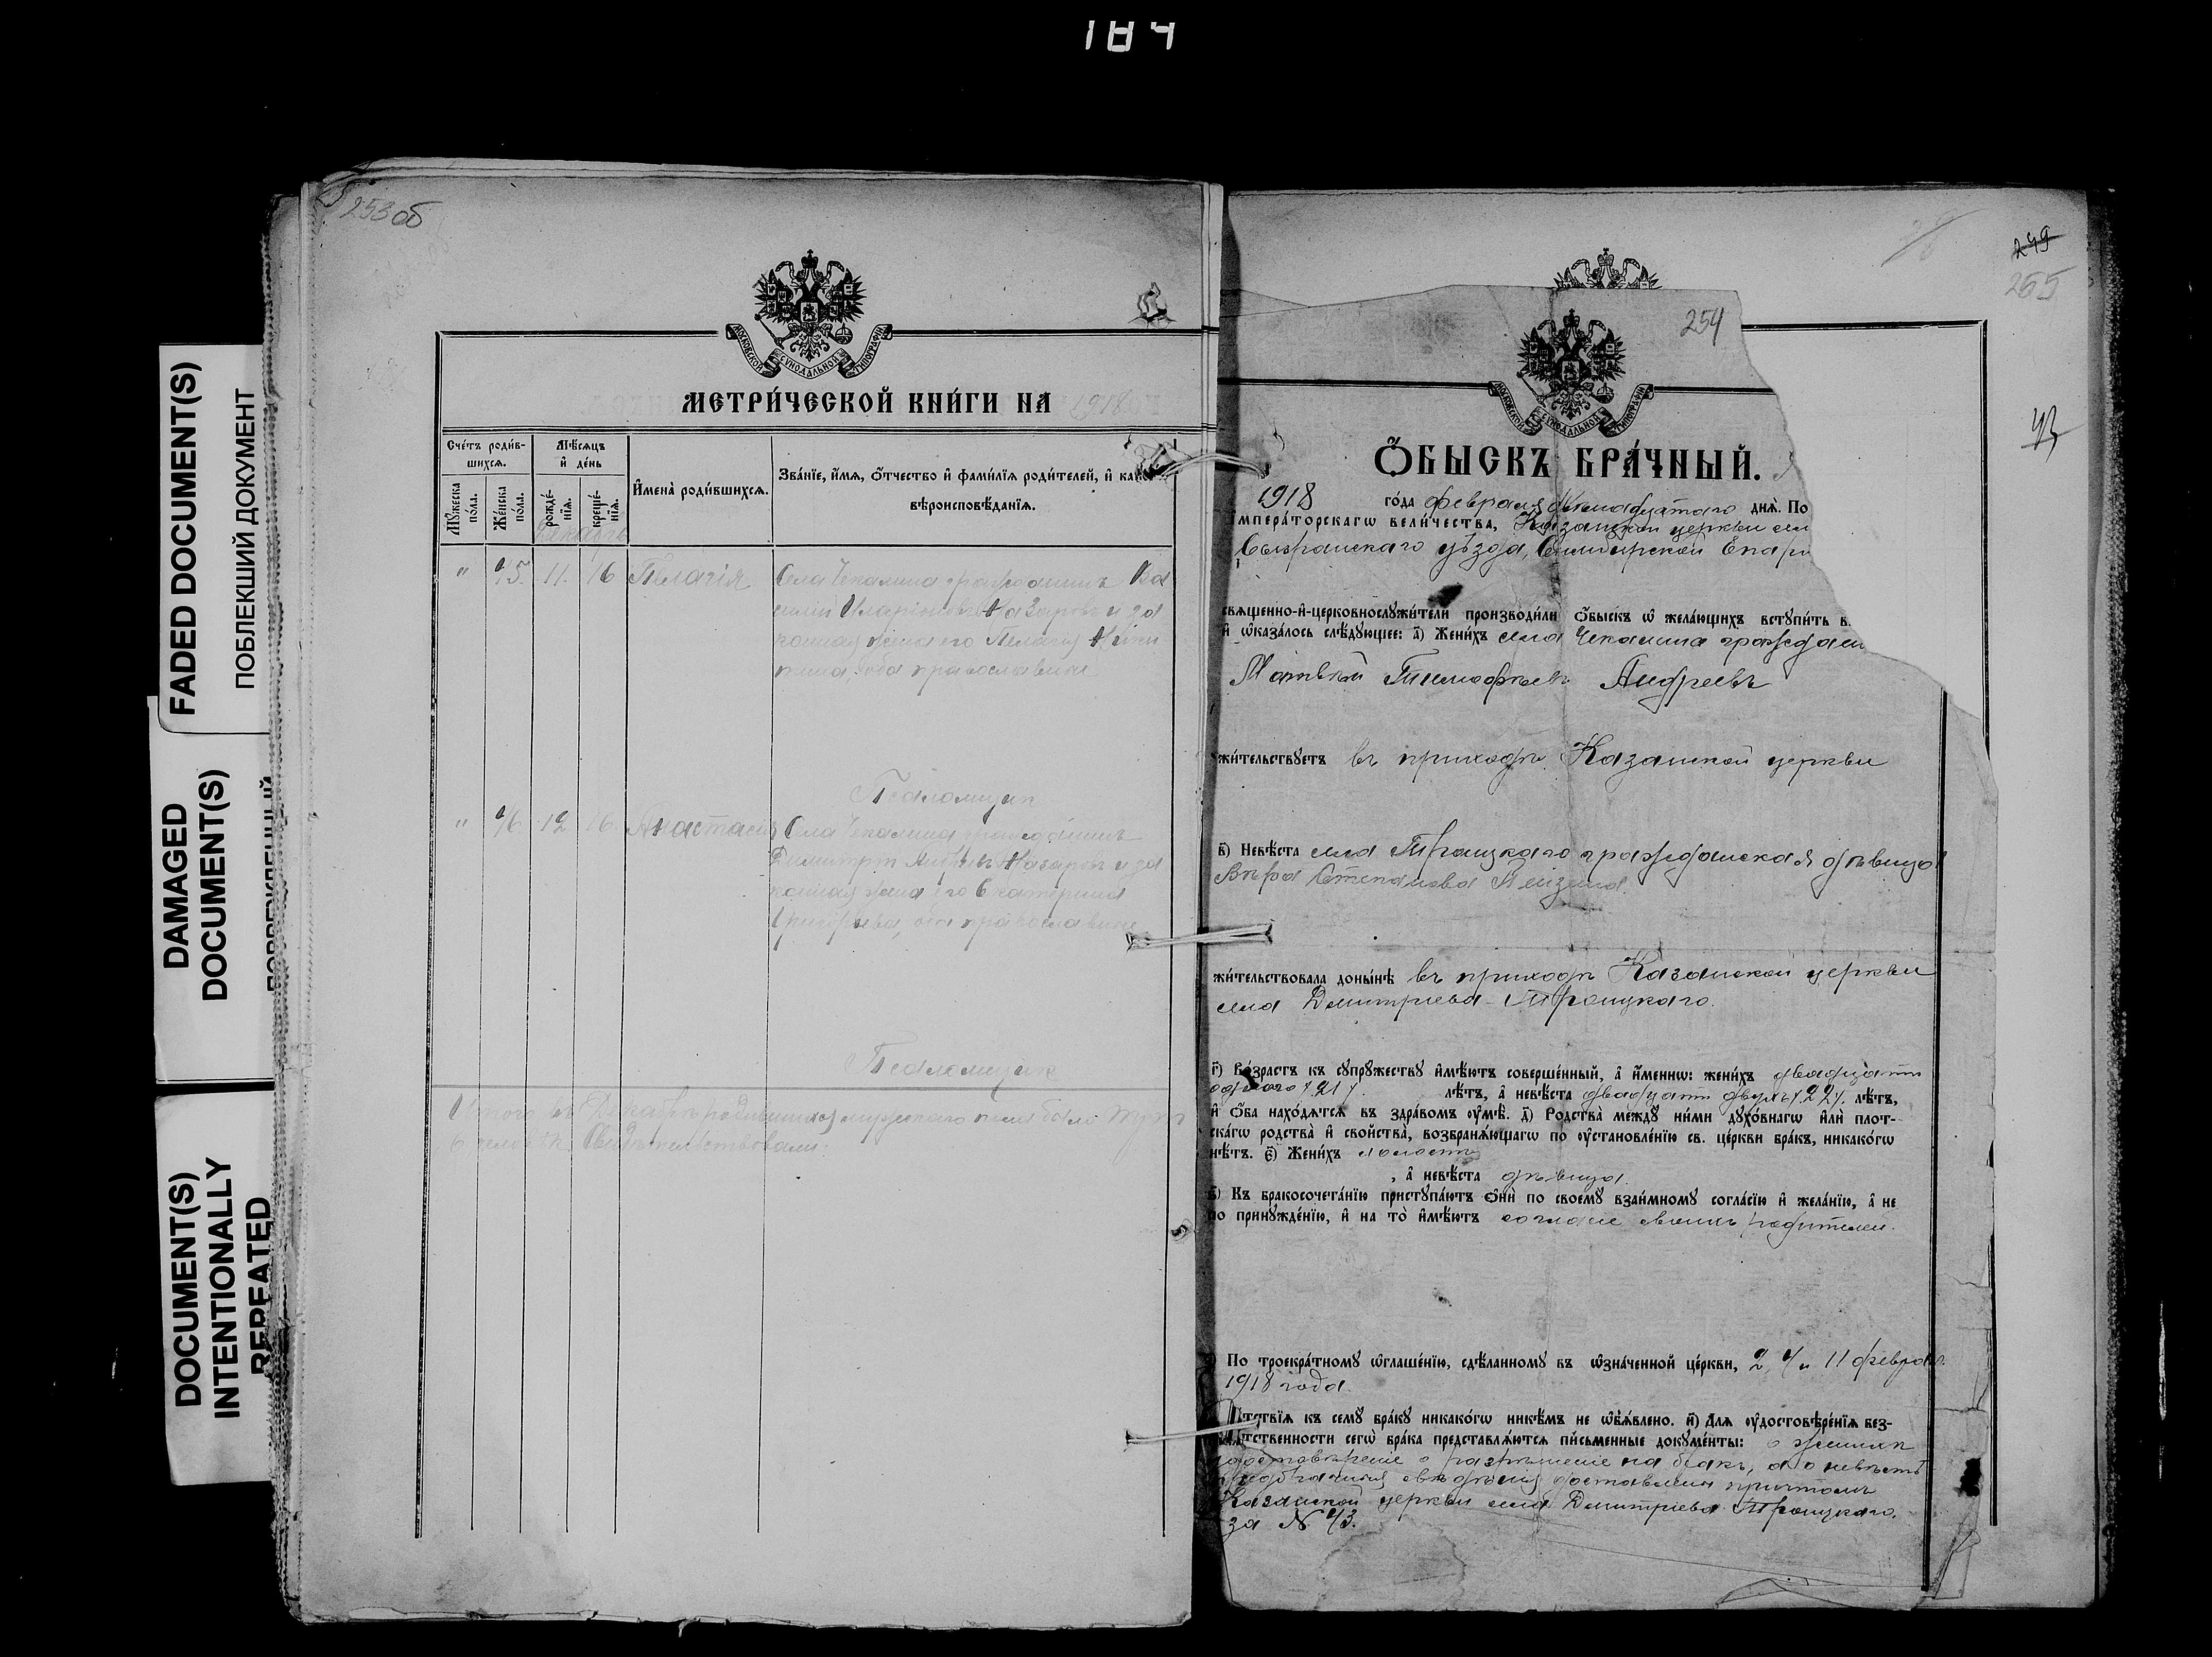 184
FADED DOCUMENT(S)
ПОБЛЕКШИЙ ДОКУМЕНТ
DAMAGED
DOCUMENT(S)
DOCUMENT(S)
INTENTIONALLY
REPEATED
253об
МОСКОВСКОЙ СѴНОДАЛЬНОЙ ТИПОГРАФІИ
МЕТРИ́ЧЕСКОЙ КНИ́ГИ НА 1918
Сче́тъ роди́в-
шихсѧ.
Мѣ́сѧцъ
и҆ де́нь
Мꙋ́жеска по́ла.
Же́нска по́ла.
рожде́-
нїѧ.
креще́-
нїѧ.
Декабрь
И҆мена̀ роди́вшихсѧ.
Зва́нїе, и҆́мѧ, ѻ҆́тчество и҆ фами́лїѧ роди́телей, и҆ како́
вѣроисповѣ́данїѧ.
" 95. 11. 16 Пелагія Села Чекалина гражданинъ Ва
силій Иларіоновъ Назаровъ и за
конная жена его Пелагія
оба православные
Псаломщик
" 96 12 16 Анастасія Села Чекалина гражданинъ
Димитрій Назаровъ и за
конная жена его Екатерина
Григорьева, оба православные
Псаломщик
Итого въ Декабрѣ родившихся мужского пола было
Свидѣтельствовали:
249
255
43
254
МОСКОВСКОЙ СѴНОДАЛЬНОЙ ТИПОГРАФІИ
Ѻ҆́БЫСКЪ БРА́ЧНЫЙ.
1918 го́да февраля днѧ̀. По
мпера́торскагѡ вели́чества, Казанской церкви сел
Сызранскаго уѣзда, Симбирской Епар
свѧще́нно-и҆-церковнослꙋжи́тели производи́ли ѻ҆́быскъ ѡ҆ жела́ющихъ встꙋпи́ть в
и҆ ѡ҆каза́лось слѣ́дꙋющее: а҃) Жени́хъ села Чекалина граждани
Матвѣй Тимофѣевъ Андреевъ
жи́тельствꙋетъ въ приходѣ Казанской церкви
в҃) Невѣ́ста села Троицкаго гражданская дѣвица
Вѣра Степанова
жи́тельствовала доны́нѣ въ приходѣ Казанской церкви
села Дмитріева-Троицкаго.
г҃) Во́зрастъ къ сꙋпрꙋ́жествꙋ и҆мѣ́ютъ соверше́нный, а҆ и҆́меннѡ: жени́хъ двадцати
одного /21/ лѣ́тъ, а҆ невѣ́ста двадцати двухъ /22/. лѣ́тъ,
и҆ ѻ҆́ба нахо́дѧтсѧ въ здра́вомъ ᲂу҆мѣ̀. д҃) Родства̀ ме́ждꙋ ни́ми дꙋхо́внагѡ и҆лѝ плот-
ска́гѡ родства̀ и҆ свойства̀, возбранѧ́ющагѡ по ᲂу҆становле́нїю св. це́ркви бра́къ, никако́гѡ
нѣ́тъ. є҃) Жени́хъ холостъ
, а҆ невѣ́ста дѣвица.
ѕ҃) Къ бракосочета́нїю пристꙋпа́ютъ ѻ҆нѝ по своемꙋ̀ взаи́мномꙋ согла́сїю и҆ жела́нїю, а҆ не
по принꙋжде́нїю, и҆ на то̀ и҆мѣ́ютъ согласіе своихъ родителей.
По троекра́тномꙋ ѡ҆глаше́нїю, сдѣ́ланномꙋ въ ѡ҆зна́ченной це́ркви, 2, 4 и 11 февраля
1918 года.
ѧ́тствїѧ къ семꙋ̀ бра́кꙋ никако́гѡ никѣ́мъ не ѡ҆б̾ѧ́влено. и҃) Длѧ ᲂу҆достовѣре́нїѧ без-
ѧ́тственности сегѡ̀ бра́ка представлѧ́ютсѧ пи́сьменные докꙋме́нты: о женихѣ
удостовѣреніе о разрѣшеніе на бракъ, а о невѣстѣ
предбрачныя свѣдѣнія доставлены причтомъ
Казанской церкви села Дмитріева-Троицкаго.
за № 43.